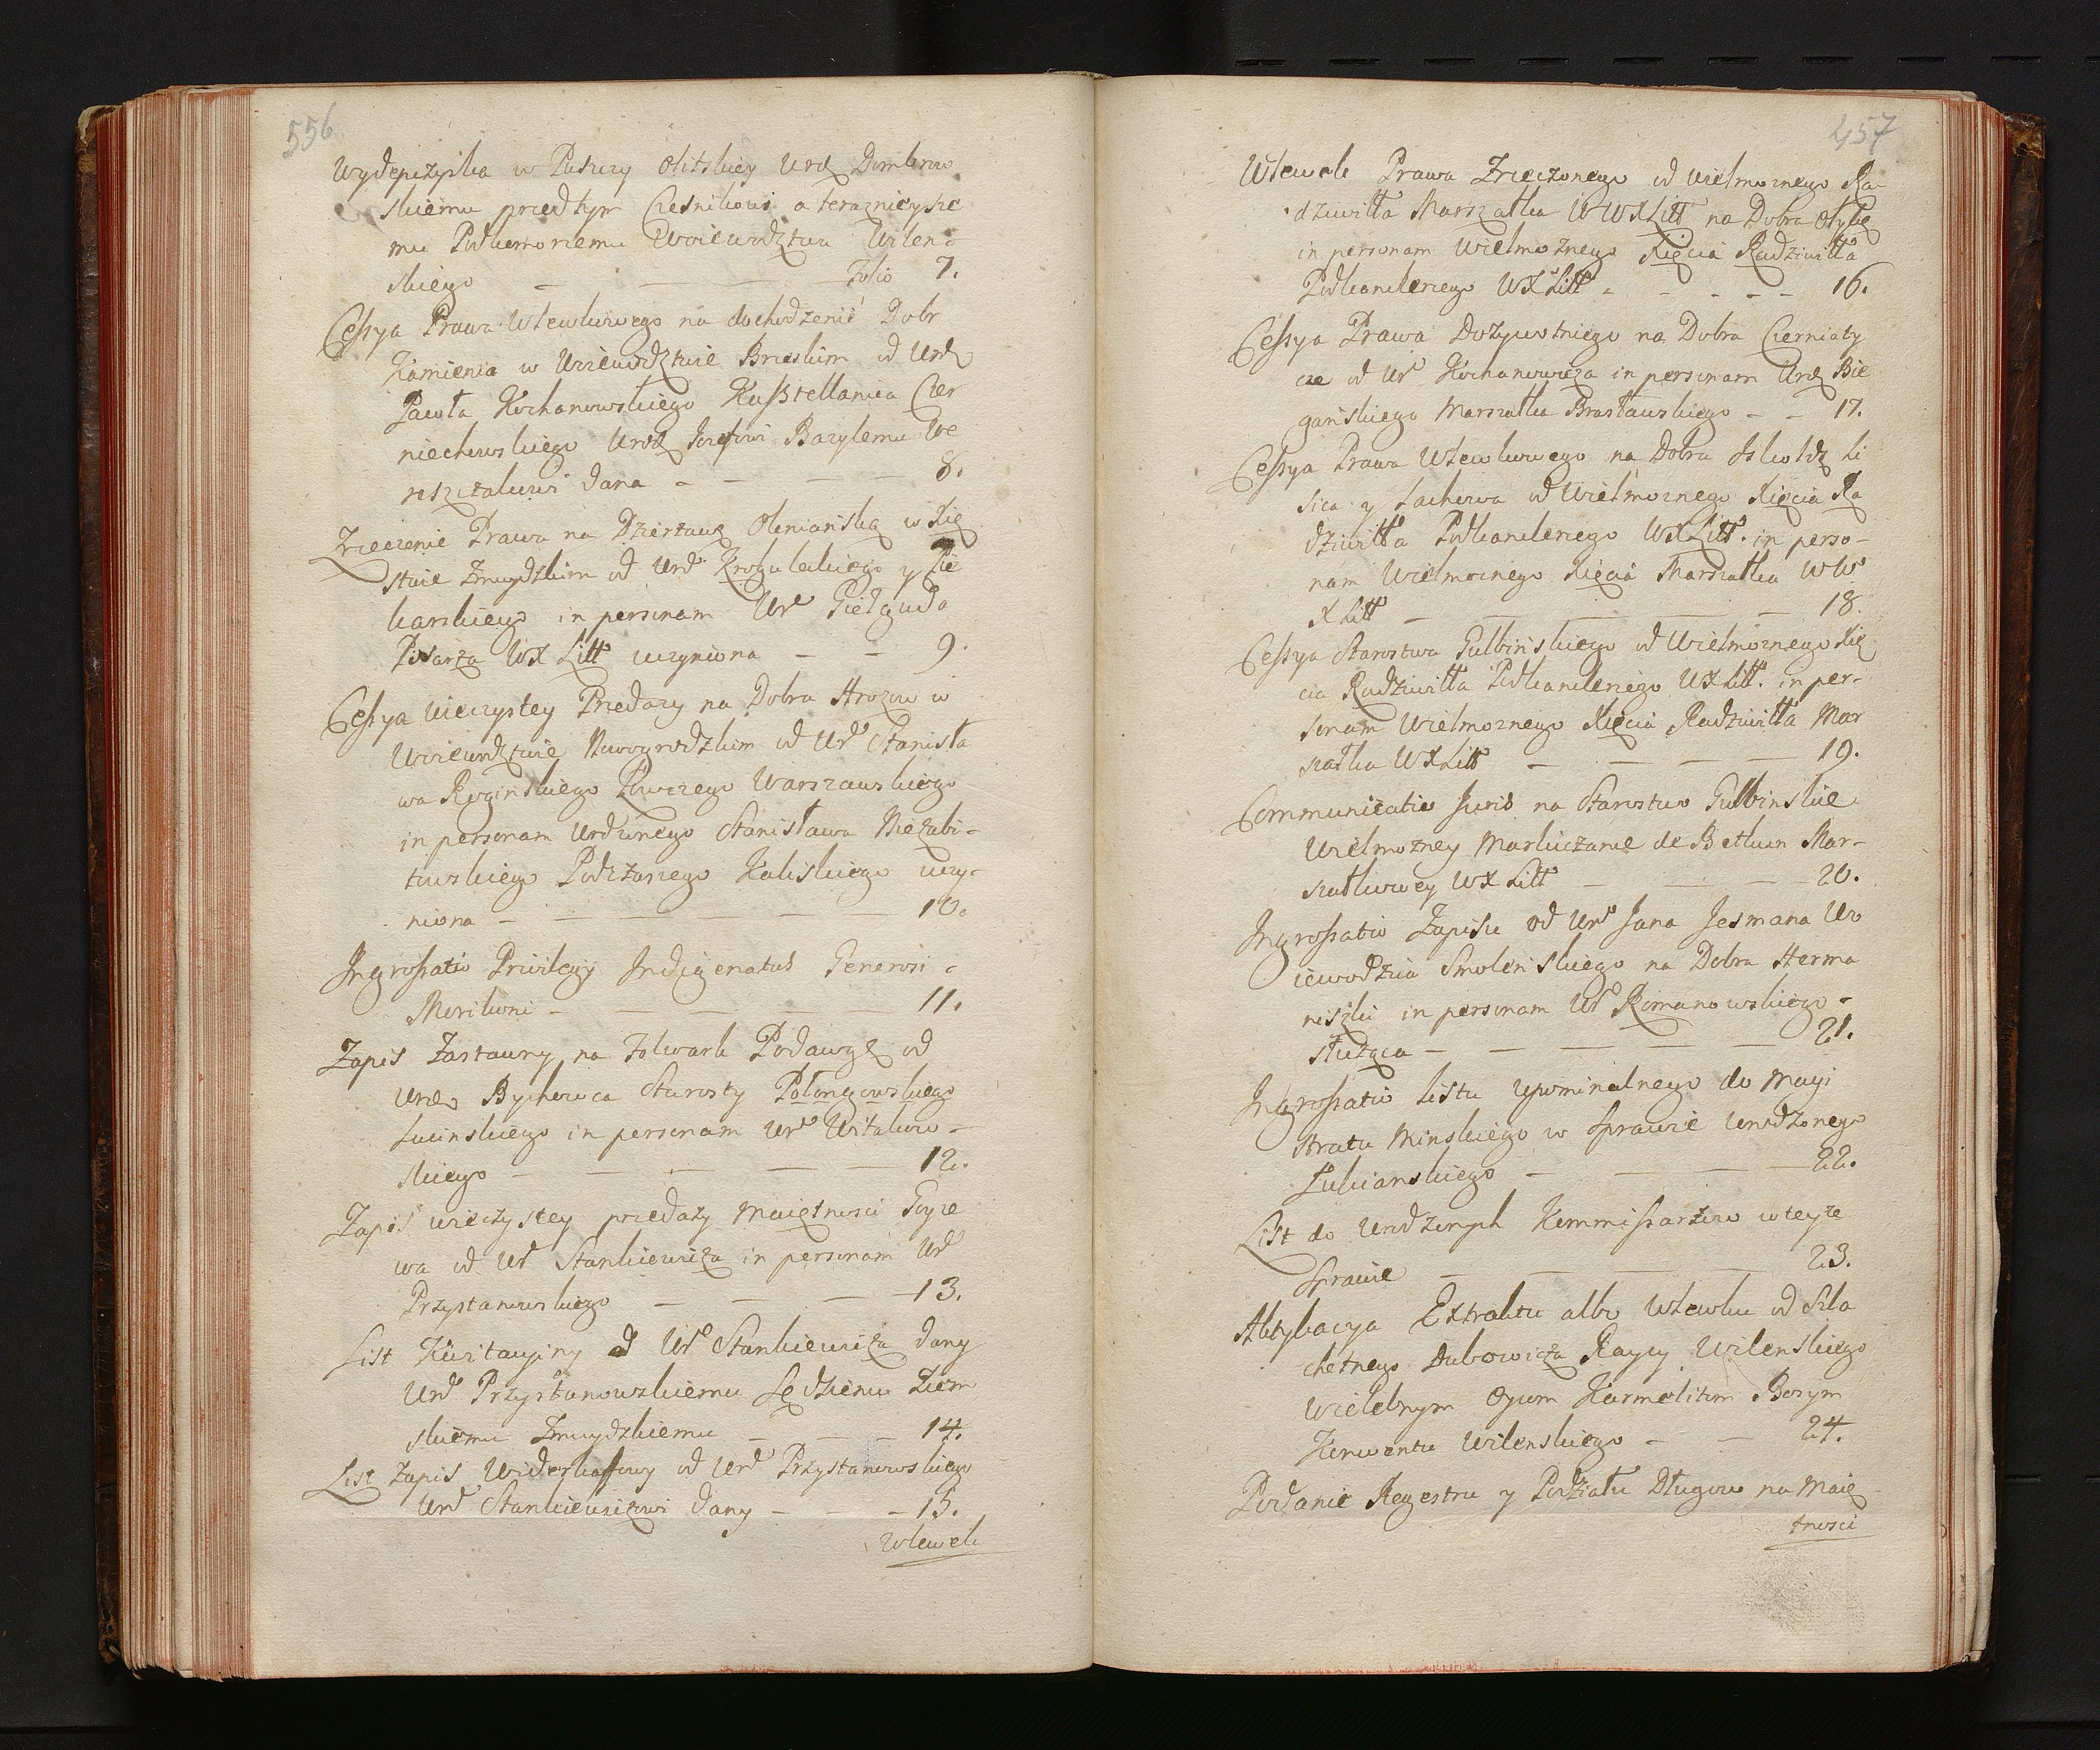 556
Wydepczyska w Puszczy Olitskiey Urd Dombrow
skiemu przedtym Czesnikowi a teraznieysze
mu Podkomorzemu Woiewodztwa Wilen-
skiego Folio 7.
Cessya Prawa Wlewkowego na dochodzenie Dobr
Kamienia w Woiewodztwie Brzeskim od Urd
Pawła Kochanowskiego Kasztellanica Czer
niechowskiego Urod Jozefowi Bazylemu We
reszczakowi dana 8.
Zrzeczenie Prawa na Dzierzawę Oleniańską w Xię
stwie Zmuydzkim od Urd y Pie
karskiego in personam Urd Giełguda
Pisarza WX Litt uczyniona 9.
Cessya wieczystey Przedazy na Dobra Hrozow w
Woiewodztwie Nowogrodzkim od Urd Stanisła
wa Roginskiego Łowczego Warszawskiego
in personam Urodzonego Stanisława Niezabi-
towskiego Podczaszego Kaliskiego uczy-
niona 10.
Ingrossatio Privilegij Indigenatus Generosi
Morikoni 11.
Zapis Zastawny na Folwark Podawgę od
Urd Bychowca Starosty Połongowskiego
in personam Urd Witakow-
skiego 12.
Zapis wieczystey przedazy Maiętnosci Goyze
wa od Urd Stankiewicza in personam Urd
Przystanowskiego 13.
List Kwitacyiny od Urd Stankiewicza dany
Urd Przystanowskiemu Sędziemu Ziem
skiemu Zmuydzkiemu 14.
List Zapis Widerkaffowy od Urd Przystanowskiego
Urd Stankiewiczowi dany 15.
Wlewek
457
Wlewek Prawa Zrzeczonego od Wielmoznego Ra
dziwiłła Marszałka WWXLitt na Dobra Ołykę
in personam Wielmoznego Xięcia Radziwiłła
Podkanclerzego WXLitt 16.
Cessya Prawa Dozywotniego na Dobra Czerniaty
cze od Urd Kochanowicza in personam Urd Bie
ganskiego Marszałka Brasławskiego 17.
Cessya Prawa Wlewkowego na Dobra Iskołdz Li
sica y Lachowa od Wielmoznego Xięcia Ra
dziwiłła Podkanclerzego WXLitt. in perso-
nam Wielmoznego Xięcia Marszałka WW
XLitt 18.
Cessya Starostwa Gulbinskiego od Wielmoznego Xię
cia Radziwiłła Podkanclerzego WXLitt. in per-
sonam Wielmoznego Xięcia Radziwiłła Mar
szałka WXLitt 19.
Communicatio Juris na Starostwo Gulbinskie
Wielmozney Markiczanie de Bethun Mar-
szałkowey WX Litt 20.
Ingrossatio Zapisu od Urd Jana Jesmana Wo
iewodzica Smolenskiego na Dobra Herma
niszki in personam Ur Romanowskiego
słuząca 21.
Ingrossatio Listu upominalnego do Magi
stratu Minskiego w Sprawie Urodzonego
Lukianskiego 22.
List do Urodzonych Kommissarzow w teyze
Sprawie 23.
Aktykacya Extraktu albo Wlewku od Szla
chetnego Dubowicza Raycy Wilenskiego
Wielebnym Oycom Karmelitom Bosym
Konwentu Wilenskiego 24.
Podanie Regestru y Podziału Długow na Maię
tnosci